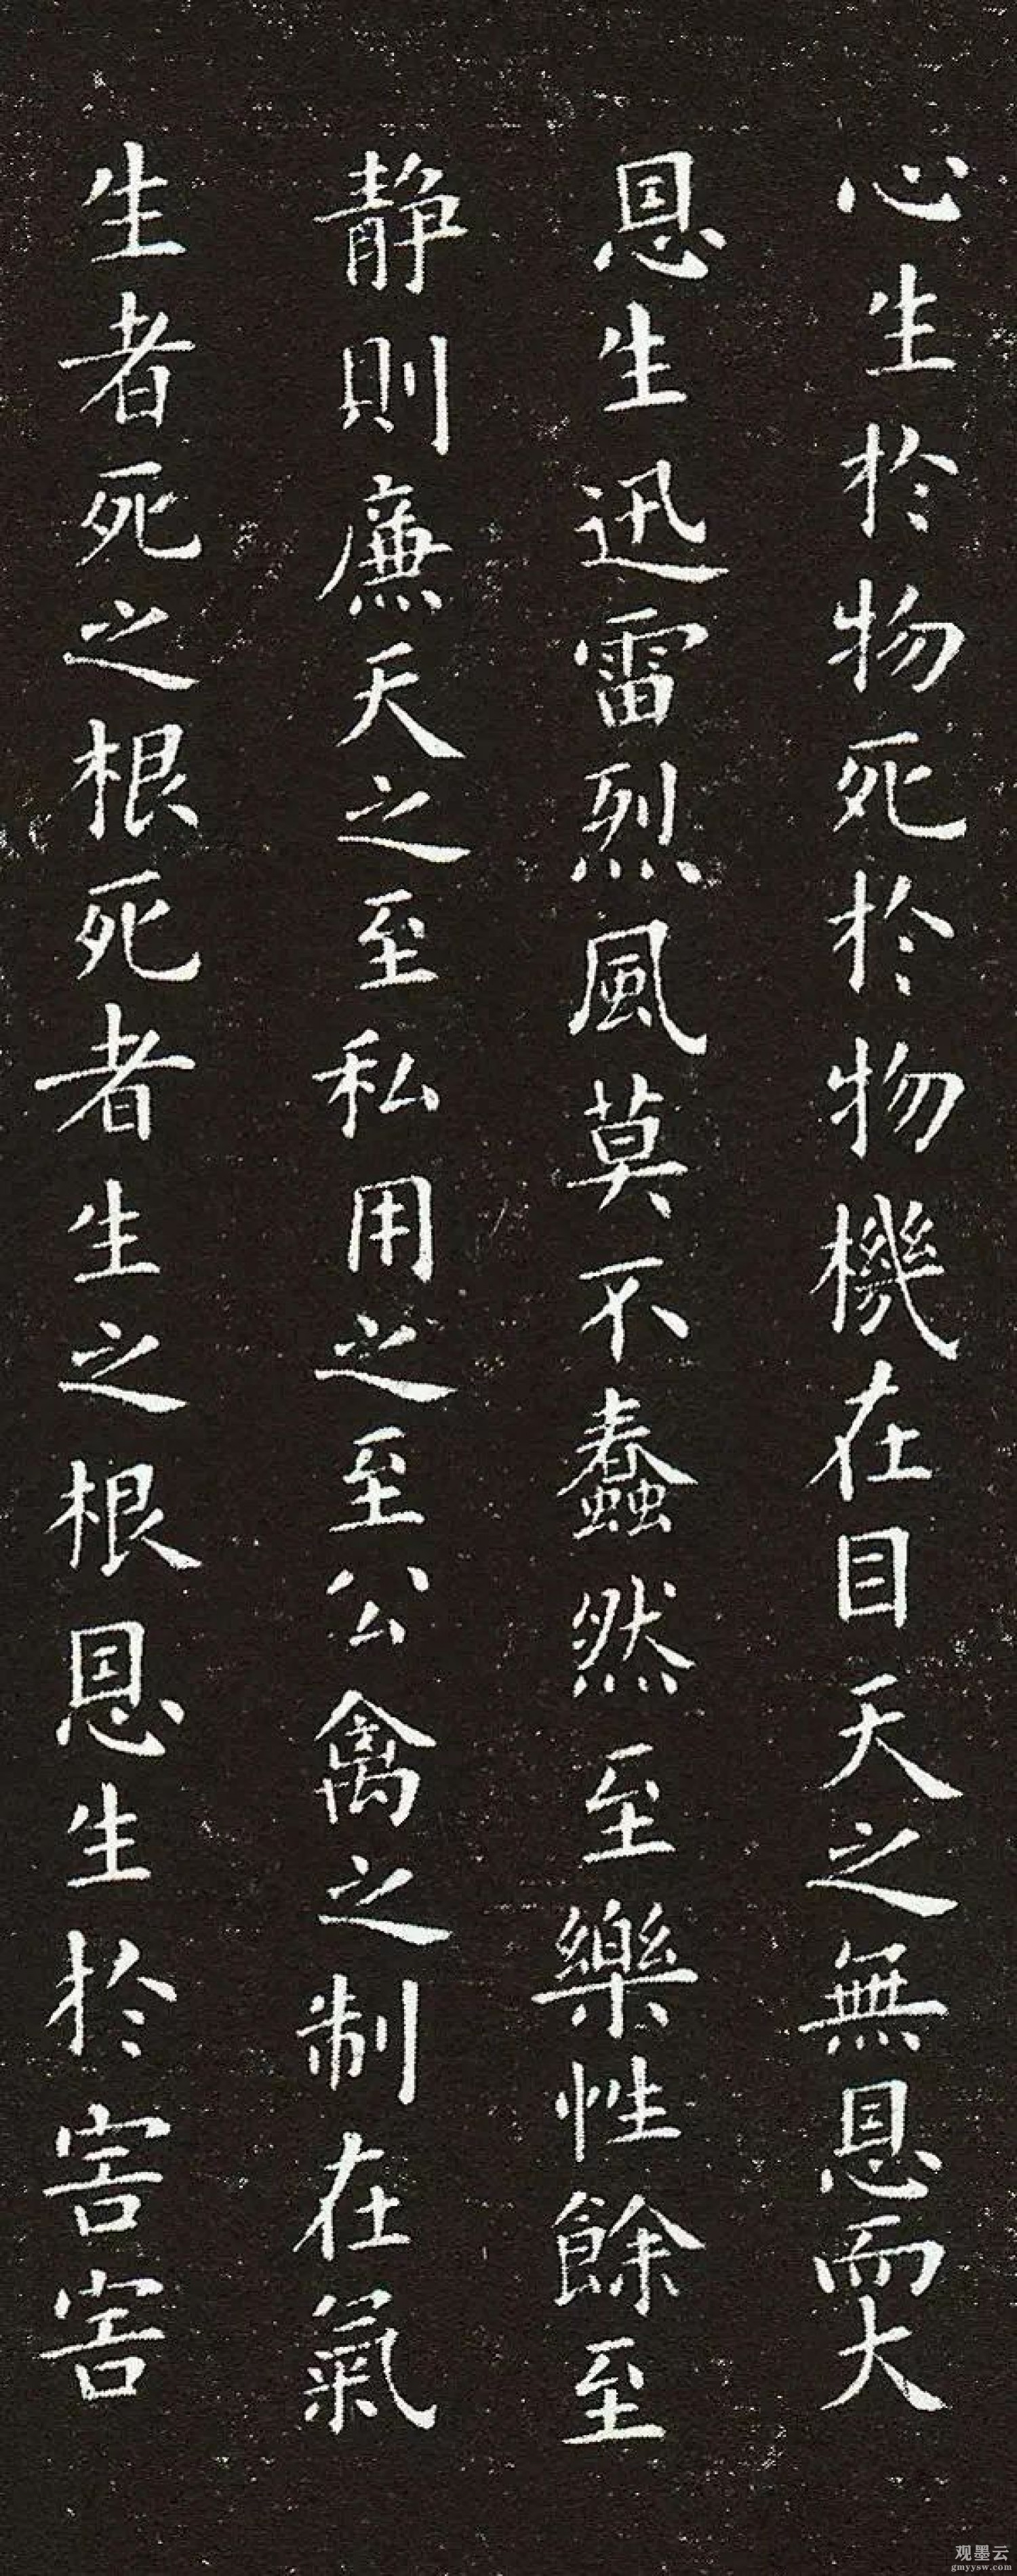 心生於物死於物機在目天之無恩而大
恩生迅雷烈風莫不蠢然至樂性餘至
静則廉天之至私用之至公禽之制在氣
生者死之根死者生之根恩生於害害
观墨云
gmyysw.com